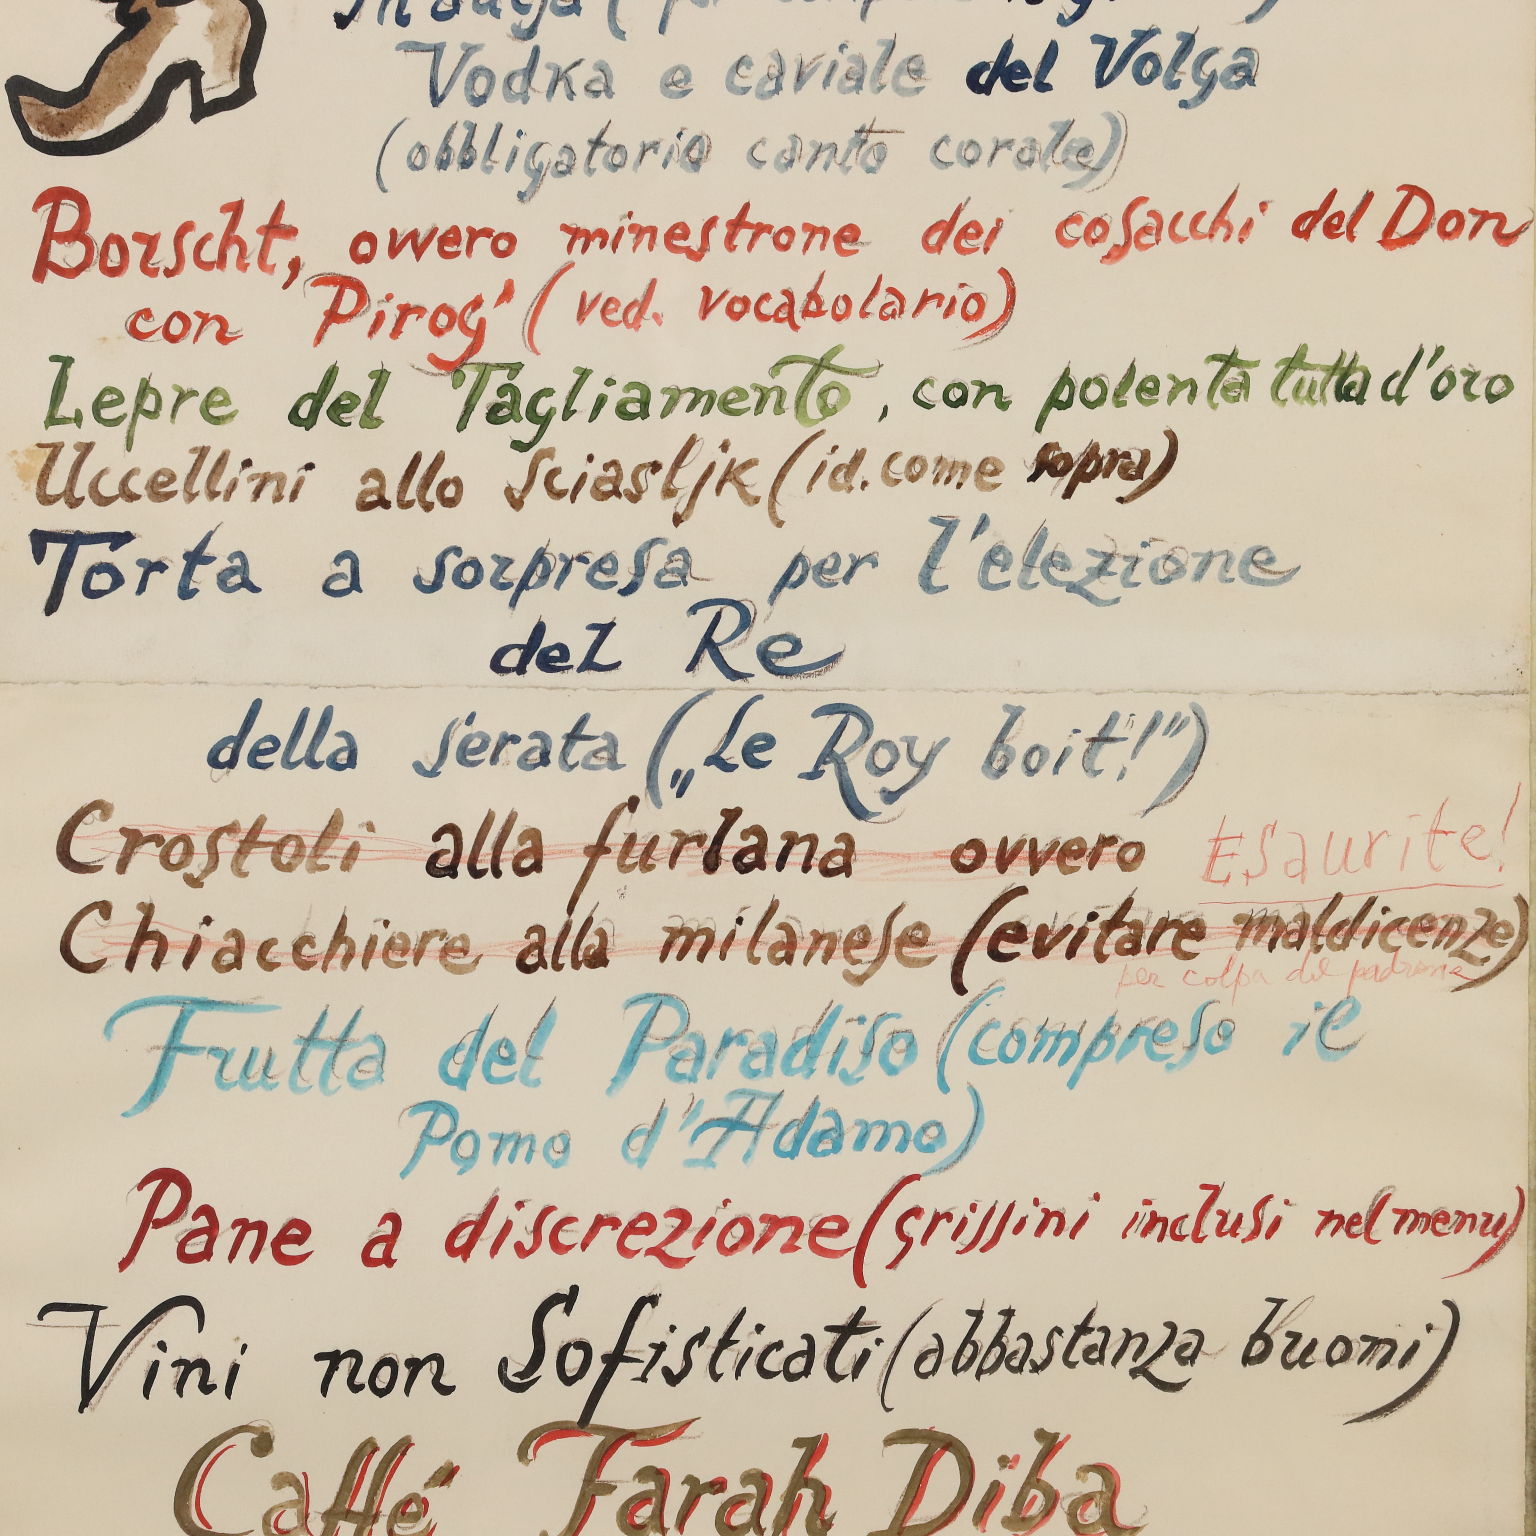 Vodka e caviale del Volga
(obbligatorio canto corale)
Borscht, ovvero minestrone dei cosacchi del Don
con "Pirog" (ved. vocabolario)
Lepre del Tagliamento, con polenta tutta d'oro
Uccellini allo sciasljk (id. come sopra)
Torta a sorpresa per l'elezione
del Re
della serata („Le Roy boit!")
Crostoli alla furlana ovvero Esaurite!
Chiacchiere alla milanese (evitare maldicenze)
per colpa del padrone
Frutta del Paradiso (compreso il
Pomo d'Adamo)
Pane a discrezione (grissini inclusi nel menu)
Vini non Sofisticati (abbastanza buoni)
Caffé Farah Diba